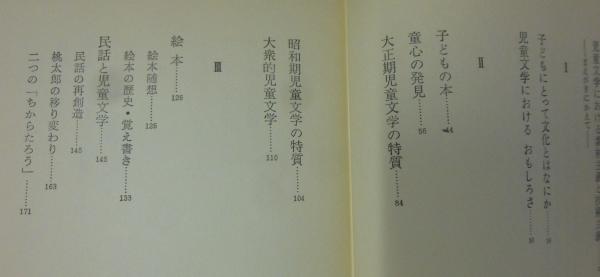 Ⅰ
子どもにとって文化とはなにか
児童文学における おもしろさ
Ⅱ
子どもの本 44
童心の発見 56
大正期児童文学の特質 84
昭和期児童文学の特質 104
大衆的児童文学 110
Ⅲ
絵本 126
絵本随想 126
絵本の歴史・覚え書き 133
民話と児童文学 145
民話の再創造 145
桃太郎の移り変わり 163
二つの「ちからたろう」 171